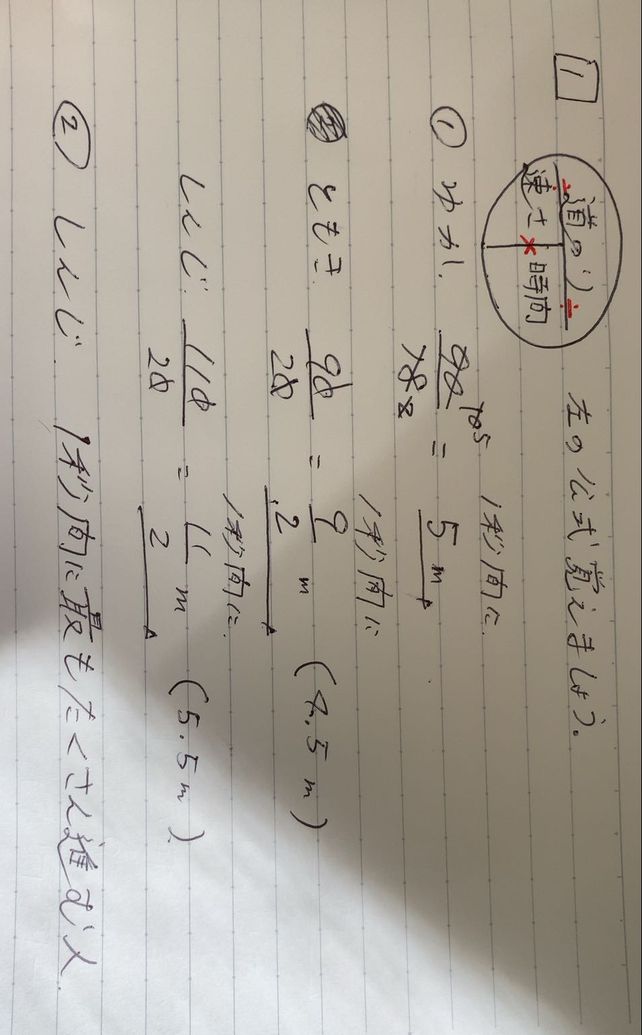 1
道のり
速さ × 時間
左の公式覚えましょう。
① ゆかし
1秒間に
= 5 m
ともき
1秒間に
90/20 = 9/2 m (4.5m)
しんじ
1秒間に
110/20 = 11/2 m (5.5m)
② しんじ 1秒間に最もたくさん進む人